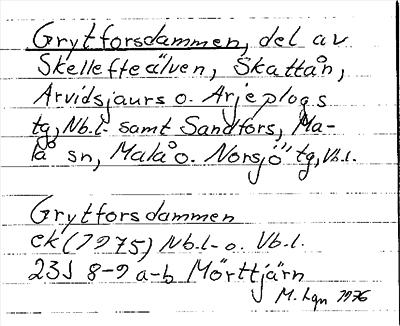 Grytforsdammen, del av
Skellefteälven, Skattån,
Arvidsjaurs o. Arjeplogs
tg, Nb.l. samt Sandfors, Ma-
lå sn, Malå o. Norsjö tg, Vb.l.
Grytforsdammen
ek (1975) Nb.l- o. Vb.l.
23J 8-9 a-b Mörttjärn
M. Lqn 1976